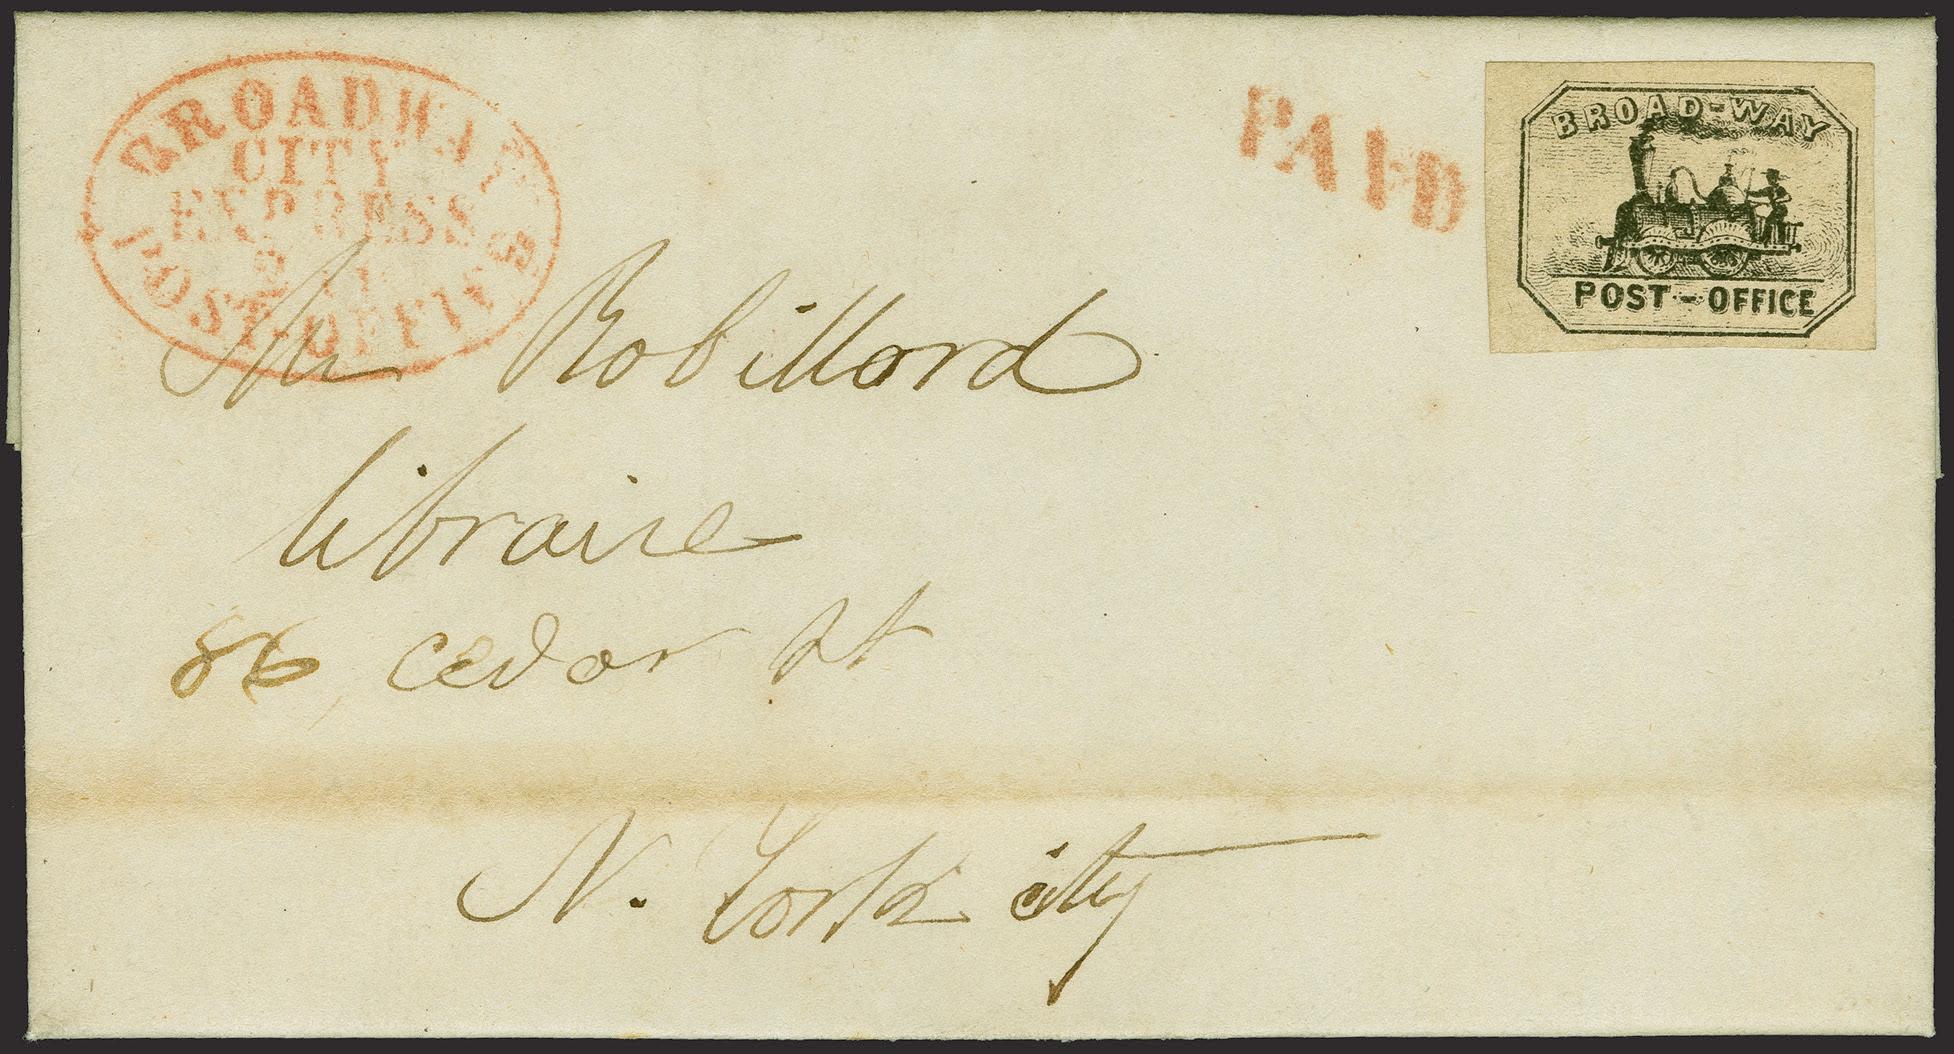 BROADWAY
CITY
EXPRESS
POST-OFFICE
PAID
BROAD-WAY
POST-OFFICE
Mr Robillard
libraire
86, cedar st
N. York city